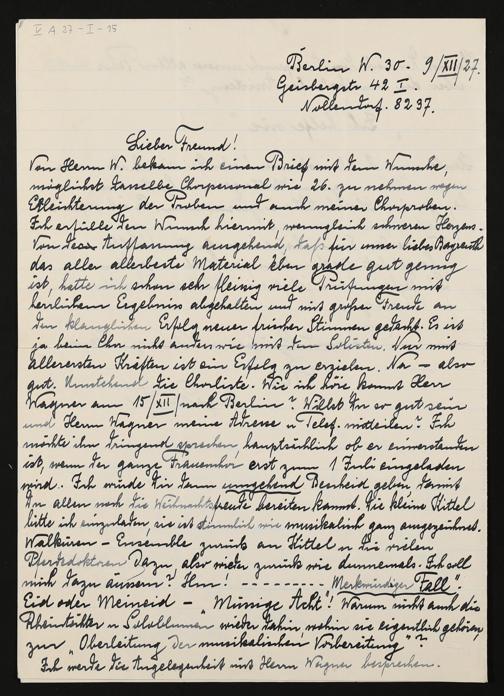 V A 27 - I - 15
Berlin W. 30 - 9/XII/27.
Geisbergstr. 42 I.
Nollendorf. 8237.
Lieber Freund!
Von Herrn W. bekam ich einen Brief mit dem Wunsche,
möglichst dasselbe Chorpersonal wie 26. zu nehmen wegen
Erleichterung der Proben und auch meiner Chorproben.
Ich erfülle den Wunsch hiermit, wenngleich schweren Herzens.
Von der Auffassung ausgehend, daß für unser liebes Bayreuth
das aller allerbeste Material eben grade gut genug
ist, hatte ich schon sehr fleissig viele Prüfungen mit
herrlichem Ergebnis abgehalten und mit großer Freude an
den klanglichen Erfolg neuer frischer Stimmen gedacht. Es ist
ja beim Chor nicht anders wie mit den Solisten. Nur mit
allerersten Kräften ist ein Erfolg zu erzielen. Na - also
gut. Umstehend die Chorliste. Wie ich höre kommt Herr
Wagner am 15/XII/ nach Berlin? Willst Du so gut sein
und Herrn Wagner meine Adresse u Telef. mitteilen? Ich
möchte ihn dringend sprechen, hauptsächlich ob er einverstanden
ist, wenn der ganze Frauenchor erst zum 1 Juli eingeladen
wird. Ich würde Dir dann umgehend Bescheid geben damit
Du allen noch die Weihnachtsfreude bereiten kannst. Die kleine Kittel
bitte ich einzuladen, sie ist stimmlich wie musikalisch ganz ausgezeichnet.
Walküren - Ensemble zurück an Kittel u die vielen
Pferdedoktoren dazu, also wieder zurück wie dunnemals. Ich soll
mich dazu äussern? Hm! - - - - - - - - - Merkwürdiger Fall".
Eid oder Meineid - "Müssige Acht"! Warum nicht auch die
Rheintöchter u Soloblumen wieder dahin, wohin sie eigentlich gehören,
zur "Oberleitung der musikalischen Vorbereitung"?
Ich werde die Angelegenheit mit Herrn Wagner besprechen.